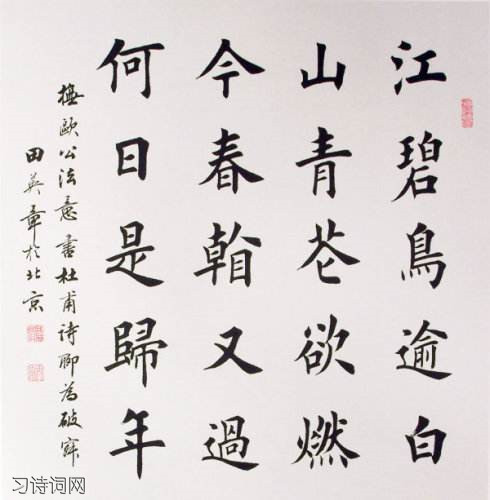 江碧鳥逾白
山青花欲燃
今春看又過
何日是歸年
橅歐公法意書杜甫诗聊為破寂
田英章於北京
习诗词网